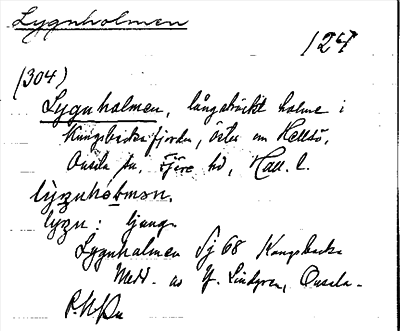 Lygnholmen
124
(304)
Lygnholmen, långsträckt holme i
Kungsbackafjorden, öster om Hellsö,
Onsala sn, Fjäre hd, Hall. l.
lyŋnhòlmən.
lyŋn: ljung.
Lygnholmen Sj 68 Kungsbacka
Medd. av Lindgren, Onsala.